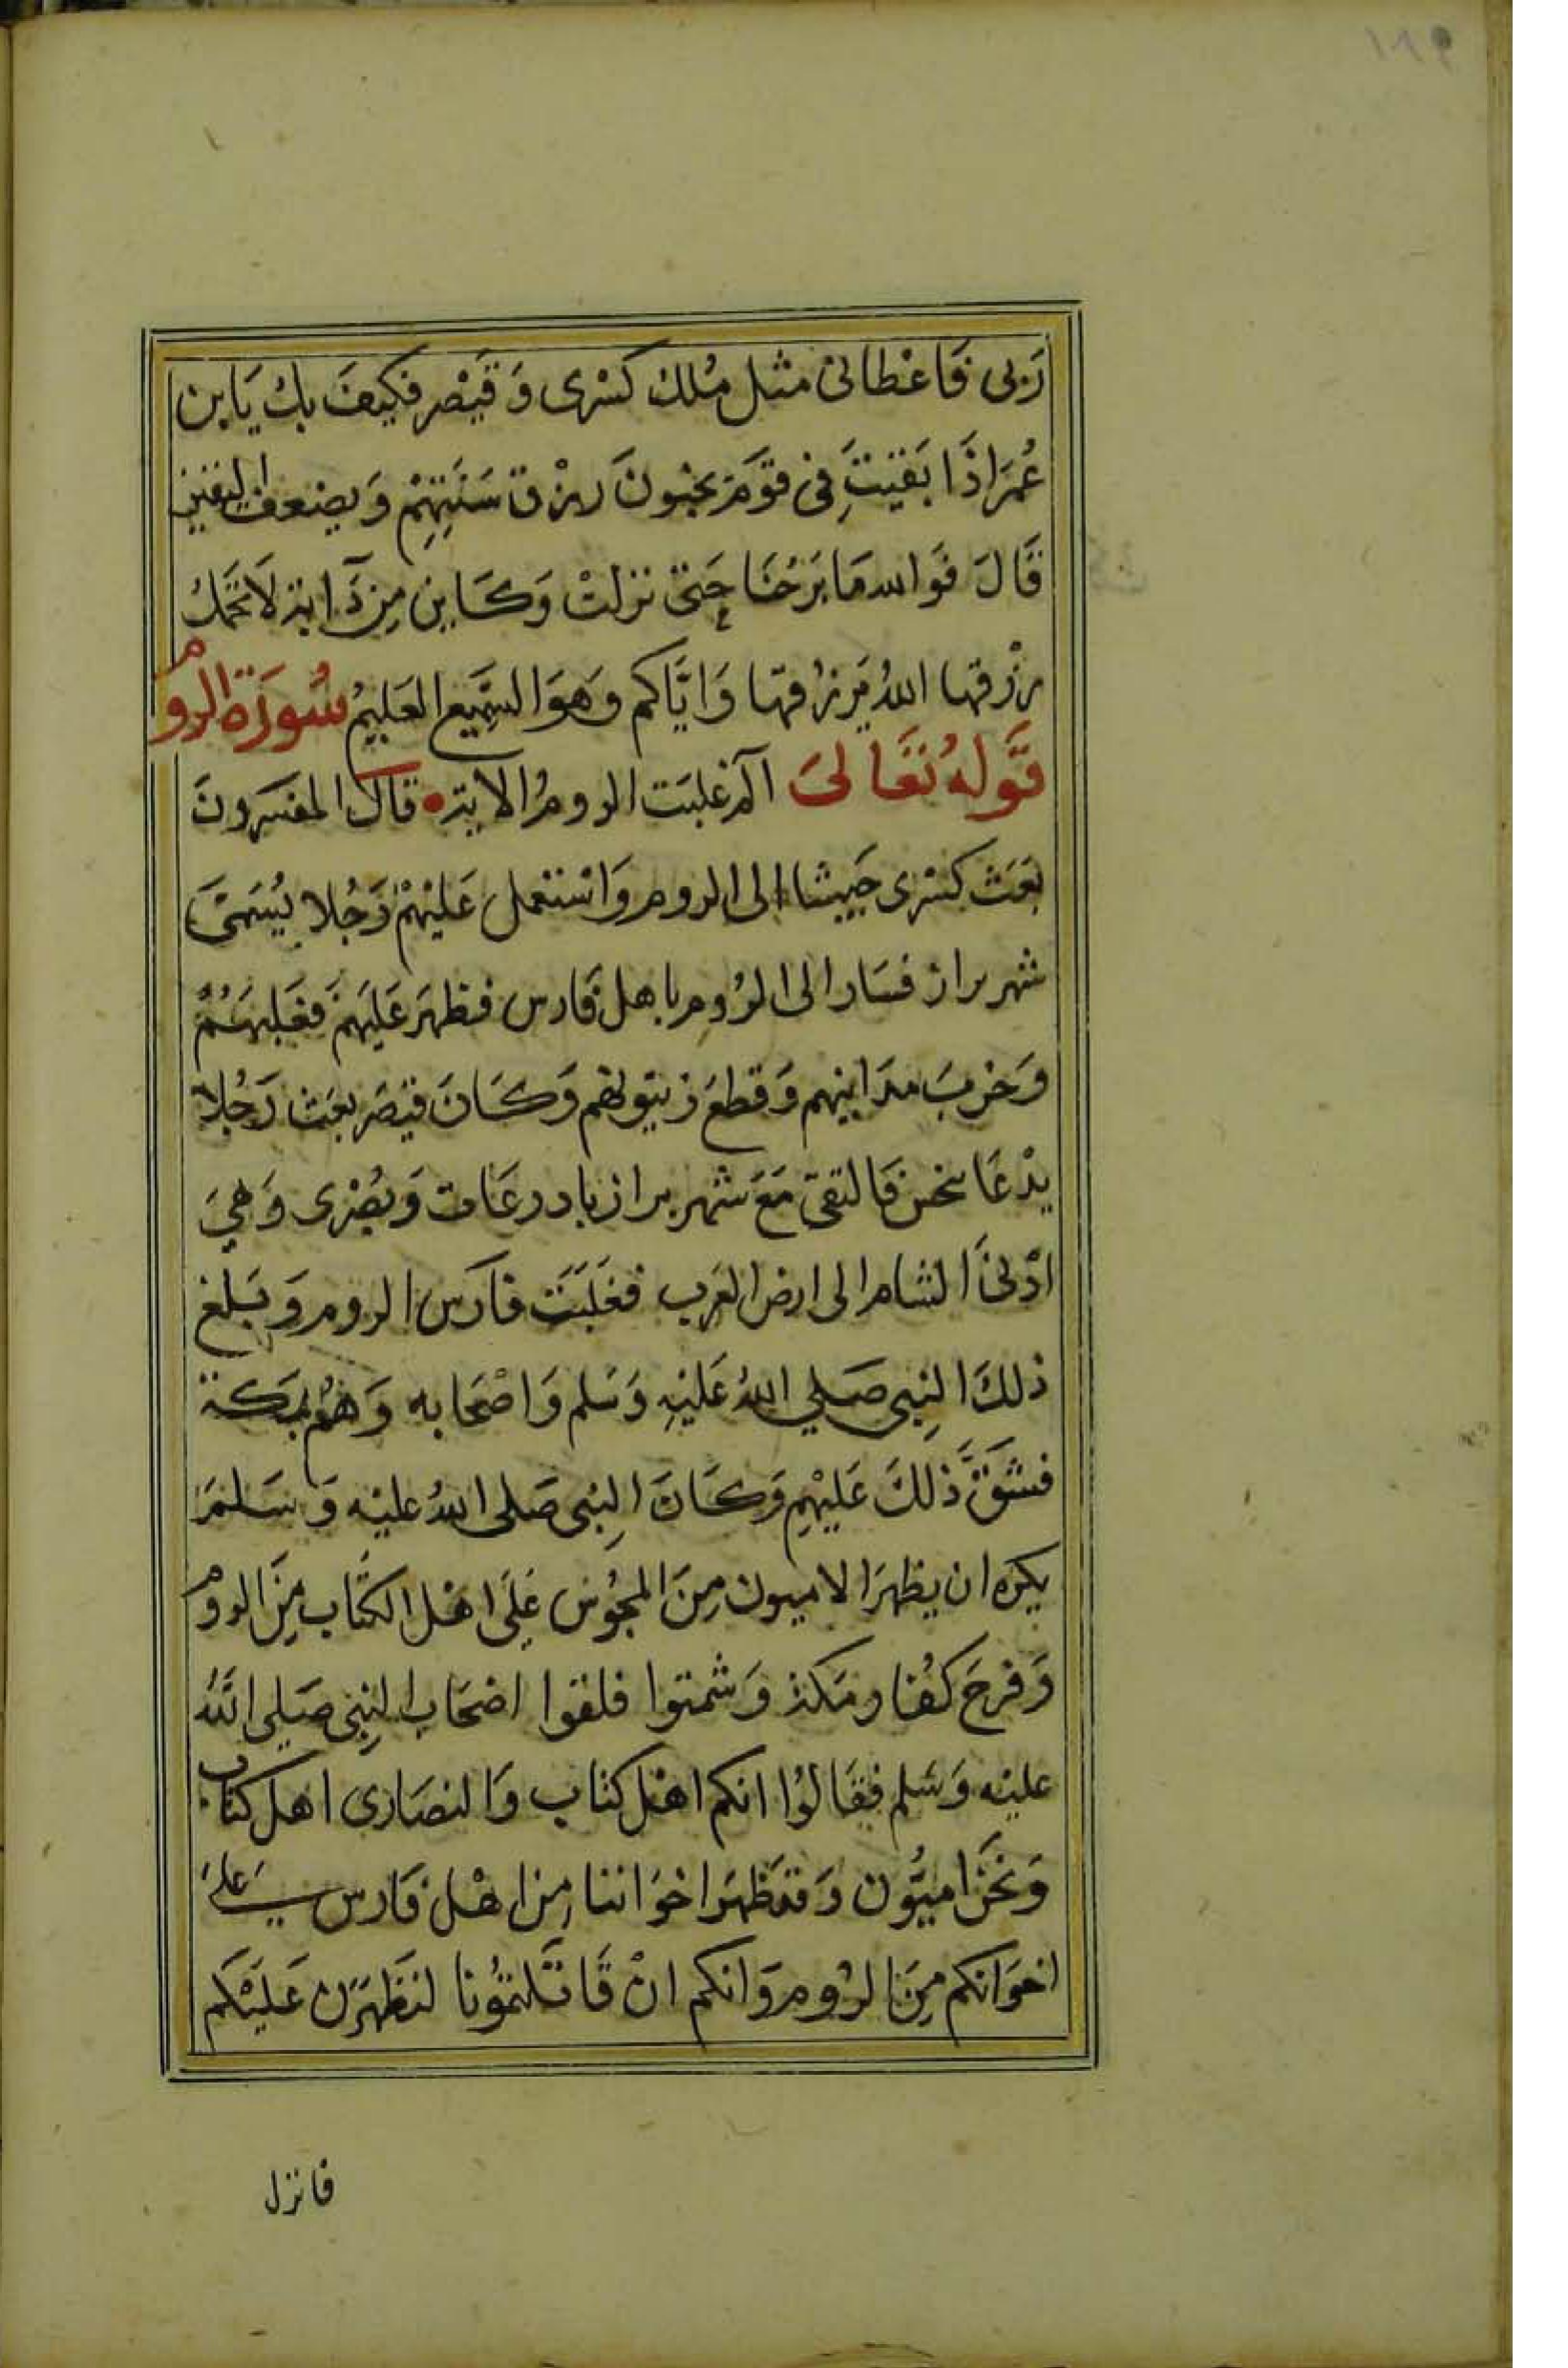 ١٨٩
رَبى فَاعْطانى مثل مُلك كَسْرى وَقَيْصر فكيفَ بك يَابن
عُمَر اذَا بَقيتَِ فى قوَم يخبون رِزْق سَنَتِهِمْ وَيضعف اليقين
قَالَ فوَالله مَا بَرَحْنَا حَتىّ نزلتْ وَكَاين مِن دَآبة لَا تحَمل
رزْقها اللهُ يَرزُقها وَايّاكم وَهوَ السّمِيع العَليمُ سُورَة الروم
قَوله تَعَالىَ آلم غلبَت الرومُ الاية قال المفسَرونَ
بعَثَ كسْرى جَيشا الى الروم وَاستعمل عَليْهمْ رَجُلا يُسَمىّ
شهربراز فسَار الى الرُوم باهل فَارس فظهَر عَليَهمْ فغَلبَهُمْ
وَخربَ مدَاينهم وَقطعَ زيتونهم وَكَانَ قيْصَر بعَث رَجُلا
يدْعَا يخس فَالتقىَ مَعَ شهربراز بادرعَات وَبُصْرى وَهيَ
ادْنىَ الشام الى ارض العَرب فغَلبَت فارَس الروم وَبَلغ
ذلكَ النِبى صَلي اللهُ عَليْهِ وَسَلم وَاصْحَابه وَهُمْ بمَكة
فشَقَّ ذلكَ عَليْهِم وَكَانَ النِبى صَلى اللهُ عليْه وَسَلمَ
يكره ان يظهرَ الاميون مِنَ المجُوس عَلىَ اهْل الكتَاب مِنَ الروم
وَفرحَ كفُار مَكة وَشمتوا فلقوا اصْحَاب النِبى صَلى اللهُ
عليْه وَسَلم فقَالوُا انكم اهْل كتاب وَالنصَارى اهل كتاب
وَنحَن اميُّون وَقدَ ظهَر اخوَاننا مِن اهْل فَارس عَلىَ
اخوَانكم مِنَ الرُوم وَانكم انْ قَاتَلتموُنا لنظهَرَن عَليَكم
فانزل